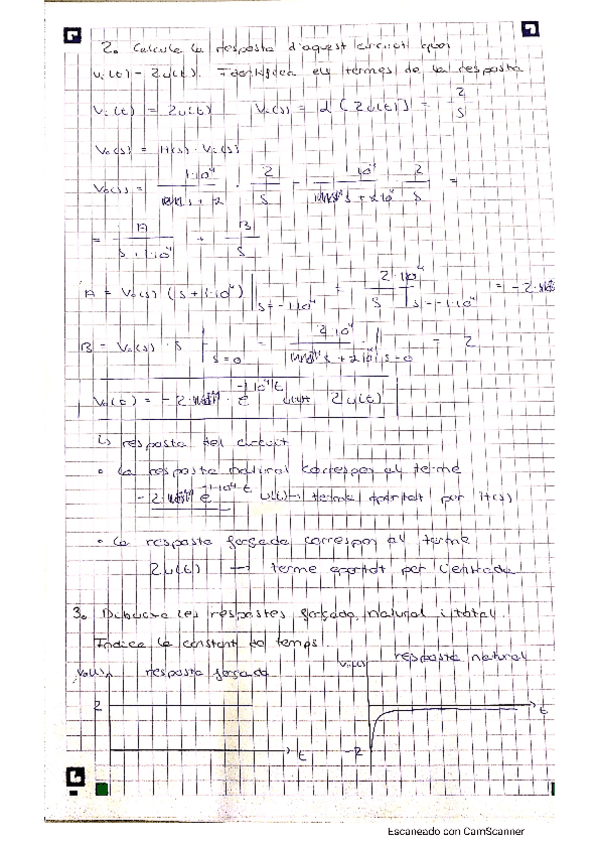 2. Calcula la resposta d'aquest circuit quan
vi(t) = 2u(t). Identifica els termes de la resposta
Vi(t) = 2u(t) Vi(s) = L{2u(t)} = 2/s
Vo(s) = H(s) · Vi(s)
Vo(s) = 1·10⁴ / s + · 2/s = 10⁴ / s + · 2/s =
= A / s + 1·10⁴ + B / s
A = Vo(s) (s + 1·10⁴) | s = -1·10⁴ = 2·10⁴ / s | s = -1·10⁴ = -2
B = Vo(s) · s | s = 0 = 2·10⁴ / s + | s = 0 = 2
Vo(t) = -2 · e^-1·10⁴t u(t) + 2u(t)
↳ resposta del circuit
• La resposta natural correspon al terme
-2 e^-1·10⁴t u(t) → terme aportat per H(s)
• La resposta forçada correspon al terme
2u(t) → terme aportat per l'entrada
3. Dibuixa les respostes forçada, natural i total.
Indica la constant de temps.
Vo(t) resposta forçada
resposta natural
2
t
t
-2
Escaneado con CamScanner